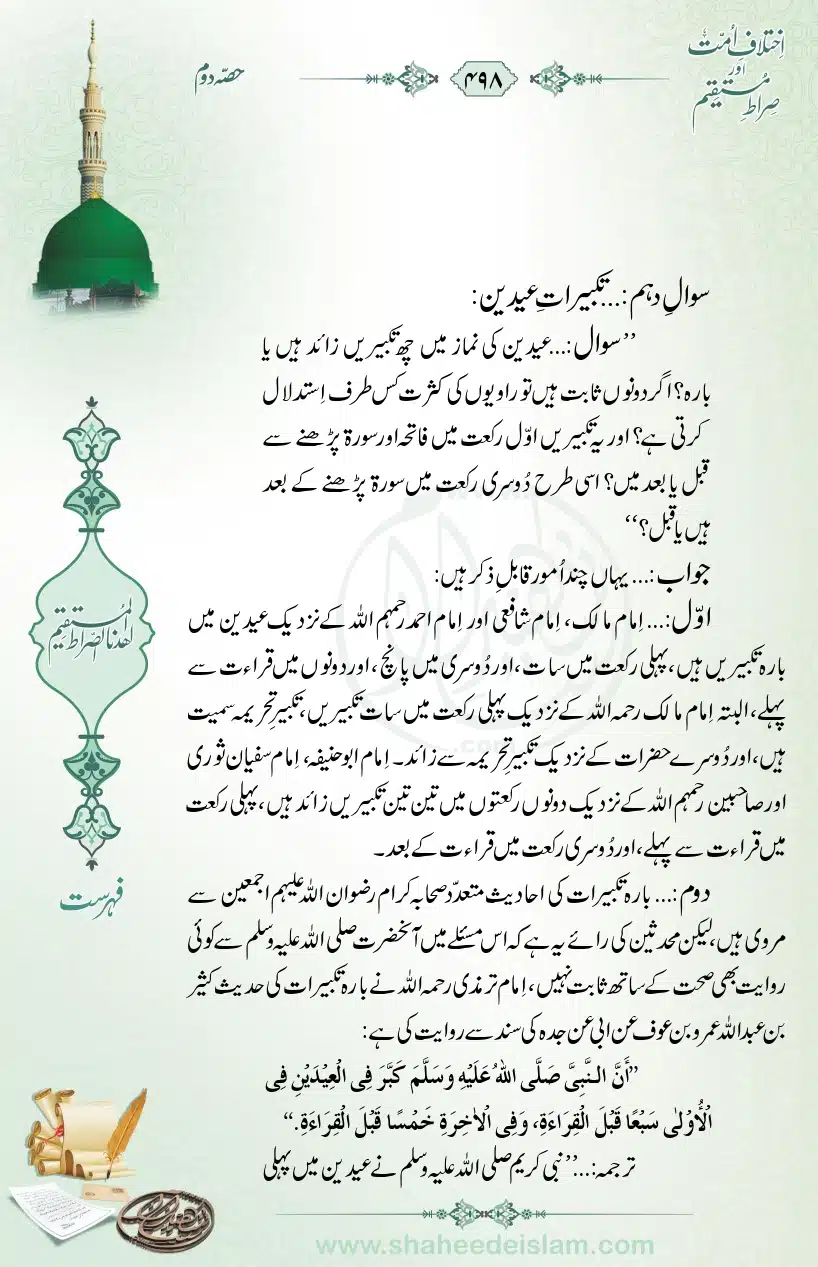 اِختلافِ اُمّت
اور
صِراطِ مُستقیم
۴۹۸
حصّہ دوم
سوالِ دہم:...تکبیراتِ عیدین:
”سوال:...عیدین کی نماز میں چھ تکبیریں زائد ہیں یا
بارہ؟ اگر دونوں ثابت ہیں تو راویوں کی کثرت کس طرف اِستدلال
کرتی ہے؟ اور یہ تکبیریں اوّل رکعت میں فاتحہ اور سورۃ پڑھنے سے
قبل یا بعد میں؟ اسی طرح دُوسری رکعت میں سورۃ پڑھنے کے بعد
ہیں یا قبل؟“
جواب:... یہاں چند اُمور قابلِ ذکر ہیں:
اوّل:... اِمام مالک، اِمام شافعی اور اِمام احمد رحمہم اللہ کے نزدیک عیدین میں
بارہ تکبیریں ہیں، پہلی رکعت میں سات، اور دُوسری میں پانچ، اور دونوں میں قراءت سے
پہلے، البتہ اِمام مالک رحمہ اللہ کے نزدیک پہلی رکعت میں سات تکبیریں، تکبیرِ تحریمہ سمیت
ہیں، اور دُوسرے حضرات کے نزدیک تکبیرِ تحریمہ سے زائد۔ اِمام ابوحنیفہ، اِمام سفیان ثوری
اور صاحبین رحمہم اللہ کے نزدیک دونوں رکعتوں میں تین تین تکبیریں زائد ہیں، پہلی رکعت
میں قراءت سے پہلے، اور دُوسری رکعت میں قراءت کے بعد۔
دوم:... بارہ تکبیرات کی احادیث متعدّد صحابہ کرام رضوان اللہ علیہم اجمعین سے
مروی ہیں، لیکن محدثین کی رائے یہ ہے کہ اس مسئلے میں آنحضرت صلی اللہ علیہ وسلم سے کوئی
روایت بھی صحت کے ساتھ ثابت نہیں، اِمام ترمذی رحمہ اللہ نے بارہ تکبیرات کی حدیث کثیر
بن عبداللہ عمرو بن عوف عن ابی عن جدہ کی سند سے روایت کی ہے:
”أَنَّ النَّبِیَّ صَلَّی اللهُ عَلَیْهِ وَسَلَّمَ کَبَّرَ فِی الْعِیْدَیْنِ فِی
الْأُوْلٰی سَبْعًا قَبْلَ الْقِرَاءَةِ، وَفِی الْاٰخِرَةِ خَمْسًا قَبْلَ الْقِرَاءَةِ.“
ترجمہ:...”نبی کریم صلی اللہ علیہ وسلم نے عیدین میں پہلی
اھدنا الصّراط المُستقیم
فہرست
www.shaheedeislam.com